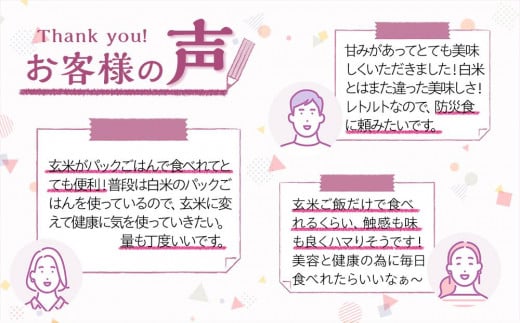 Thank you!
お客様の声
甘みがあってとても美味
しくいただきました！白米
とはまた違った美味しさ！
レトルトなので、防災食
に頼みたいです。
玄米がパックごはんで食べれてと
ても便利！普段は白米のパックご
はんを使っているので、玄米に変
えて健康に気を使っていきたい。
量も丁度いいです。
玄米ご飯だけで食べ
れるくらい、触感も味
も良くハマりそうです！
美容と健康の為に毎日
食べれたらいいなぁ〜